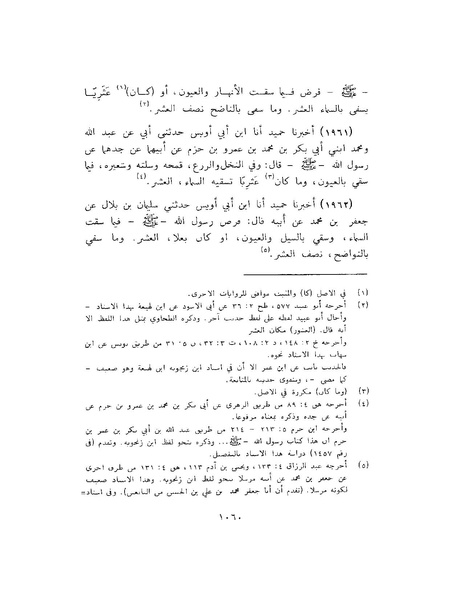 – ﷺ – فرض فيما سقت الأنهار والعيون، أو (كان)(١) عَثَرِيّا
يسقى بالسماء العشر. وما سقي بالناضح نصف العشر.(٢)
(١٩٦١) أخبرنا حميد أنا ابن أبي أويس حدثني أبي عن عبد الله
ومحمد ابني أبي بكر بن محمد بن عمرو بن حزم عن أبيهما عن جدهما عن
رسول الله – ﷺ – قال: وفي النخل والزرع، قمحه وسلته وشعيره، فيما
سقي بالعيون، وما كان(٣) عَثَريّا تسقيه السماء، العشر.(٤)
(١٩٦٢) أخبرنا حميد أنا ابن أبي أويس حدثني سليمان بن بلال عن
جعفر بن محمد عن أبيه قال: فرض رسول الله – ﷺ – فيما سقت
السماء، وسقي بالسيل والعيون، او كان بعلا، العشر. وما سقي
بالنواضح، نصف العشر.(٥)
(١) في الاصل (كا) والمثبت موافق للروايات الاخرى.
(٢) أخرجه أبو عبيد ٥٧٧، طح ٢: ٣٦ عن أبي الاسود عن ابن لهيعة بهذا الاسناد –
وأحال أبو عبيد لفظه على لفظ حديث آخر. وذكره الطحاوي بمثل هذا اللفظ الا
أنه قال: (العشور) مكان العشر
وأخرجه خ ٢: ١٤٨، د ٢: ١٠٨، ت ٣: ٣٢، ن ٥: ٣١ من طريق يونس عن ابن
شهاب بهذا الاسناد نحوه.
فالحديث ثابت عن ابن عمر الا أن في اسناد ابن زنجويه ابن لهيعة وهو ضعيف –
كما مضى –، ويتقوى حديثه بالمتابعة.
(٣) (وما كان) مكررة في الاصل.
(٤) أخرجه هق ٤: ٨٩ من طريق الزهري عن أبي بكر بن محمد بن عمرو بن حزم عن
أبيه عن جده وذكره بمعناه مرفوعا.
وأخرجه ابن حزم ٥: ٢١٣ – ٢١٤ من طريق عبد الله بن أبي بكر بن عمر بن
حزم أن هذا كتاب رسول الله – ﷺ ... وذكره بنحو لفظ ابن زنجويه. وتقدم (في
رقم ١٤٥٧) دراسة هذا الاسناد بالتفصيل.
(٥) أخرجه عبد الرزاق ٤: ١٣٣، ويحيى بن آدم ١١٣، هق ٤: ١٣١ من طرق اخرى
عن جعفر بن محمد عن أبيه مرسلا بنحو لفظ ابن زنجويه. وهذا الاسناد ضعيف
لكونه مرسلا. (تقدم أن أبا جعفر محمد بن علي بن الحسين من التابعين). وفي اسناد=
١٠٦٠